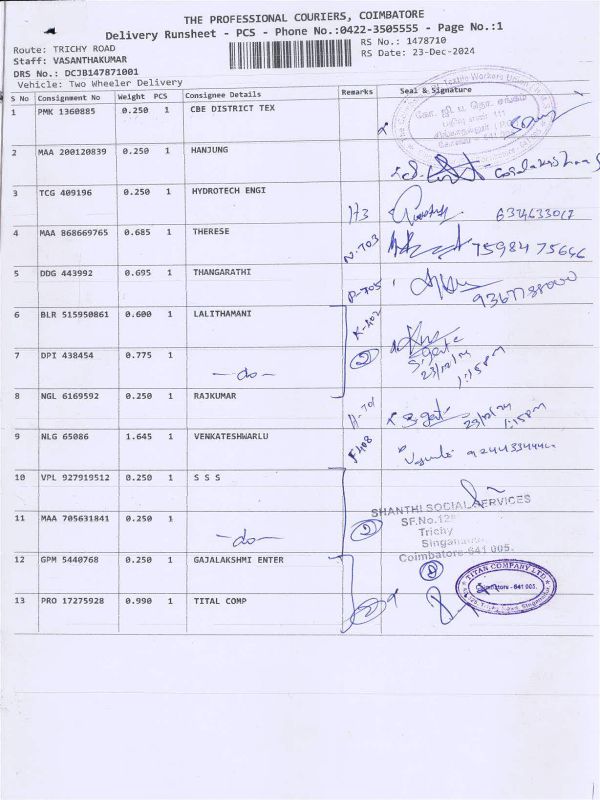 THE PROFESSIONAL COURIERS, COIMBATORE
Delivery Runsheet - PCS - Phone No.:0422-3505555 - Page No.:1
Route: TRICHY ROAD
RS No.: 1478710
Staff: VASANTHAKUMAR
RS Date: 23-Dec-2024
DRS No.: DCJB147871001
Vehicle: Two Wheeler Delivery
S No Consignment No Weight PCS Consignee Details Remarks Seal & Signature
1 PMK 1360885 0.250 1 CBE DISTRICT TEX
Textile Workers Union
641 005
2 MAA 200120839 0.250 1 HANJUNG
3 TCG 409196 0.250 1 HYDROTECH ENGI
H3
4 MAA 868669765 0.685 1 THERESE
N-703 75984 75646
5 DDG 443992 0.695 1 THANGARATHI
6 BLR 515950861 0.600 1 LALITHAMANI
K-402
7 DPI 438454 0.775 1 -do-
2 S.gate
23/12/24
1:15pm
8 NGL 6169592 0.250 1 RAJKUMAR
1:15pm
9 NLG 65086 1.645 1 VENKATESHWARLU
F408
10 VPL 927919512 0.250 1 S S S
SHANTHI SOCIAL SERVICES
SF.No.128
Trichy
11 MAA 705631841 0.250 1 -do-
2
Singana
Coimbatore-641 005.
12 GPM 5440768 0.250 1 GAJALAKSHMI ENTER
TITAN COMPANY LTD
Coimbatore - 641 005.
13 PRO 17275928 0.990 1 TITAL COMP
2